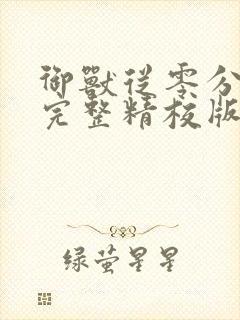 御獸從零分
完整精校版
绿萤星星